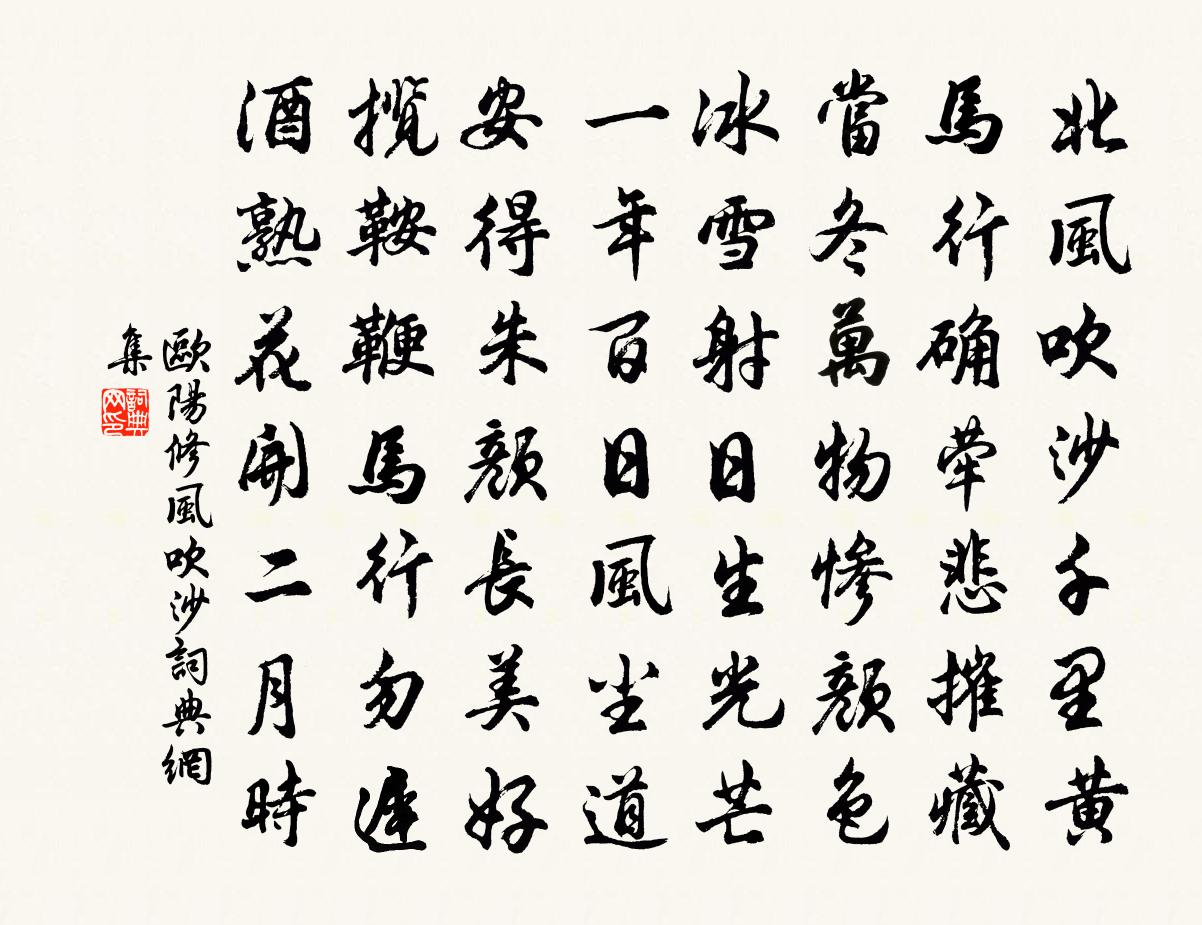 北風吹沙千里黄
馬行确犖悲摧藏
當冬萬物慘顔色
冰雪射日生光芒
一年百日風尘道
安得朱顔長美好
攬鞍鞭馬行勿遲
酒熟花開二月時
歐陽修風吹沙詞典網
集
詞典
网印